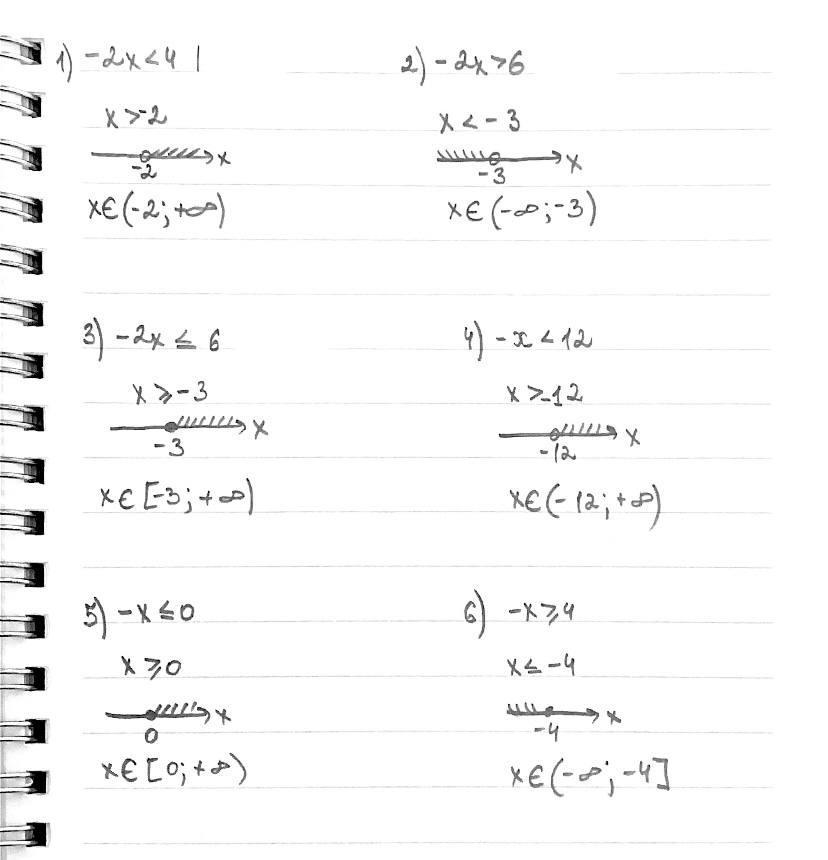 1) -2x<4 |
x>-2
x
-2
x∈(-2;+∞)
2) -2x>6
x<-3
x
-3
x∈(-∞;-3)
3) -2x≤6
x≥-3
x
-3
x∈[-3;+∞)
4) -x<12
x>-12
x
-12
x∈(-12;+∞)
5) -x≤0
x≥0
x
0
x∈[0;+∞)
6) -x≥4
x≤-4
x
-4
x∈(-∞;-4]